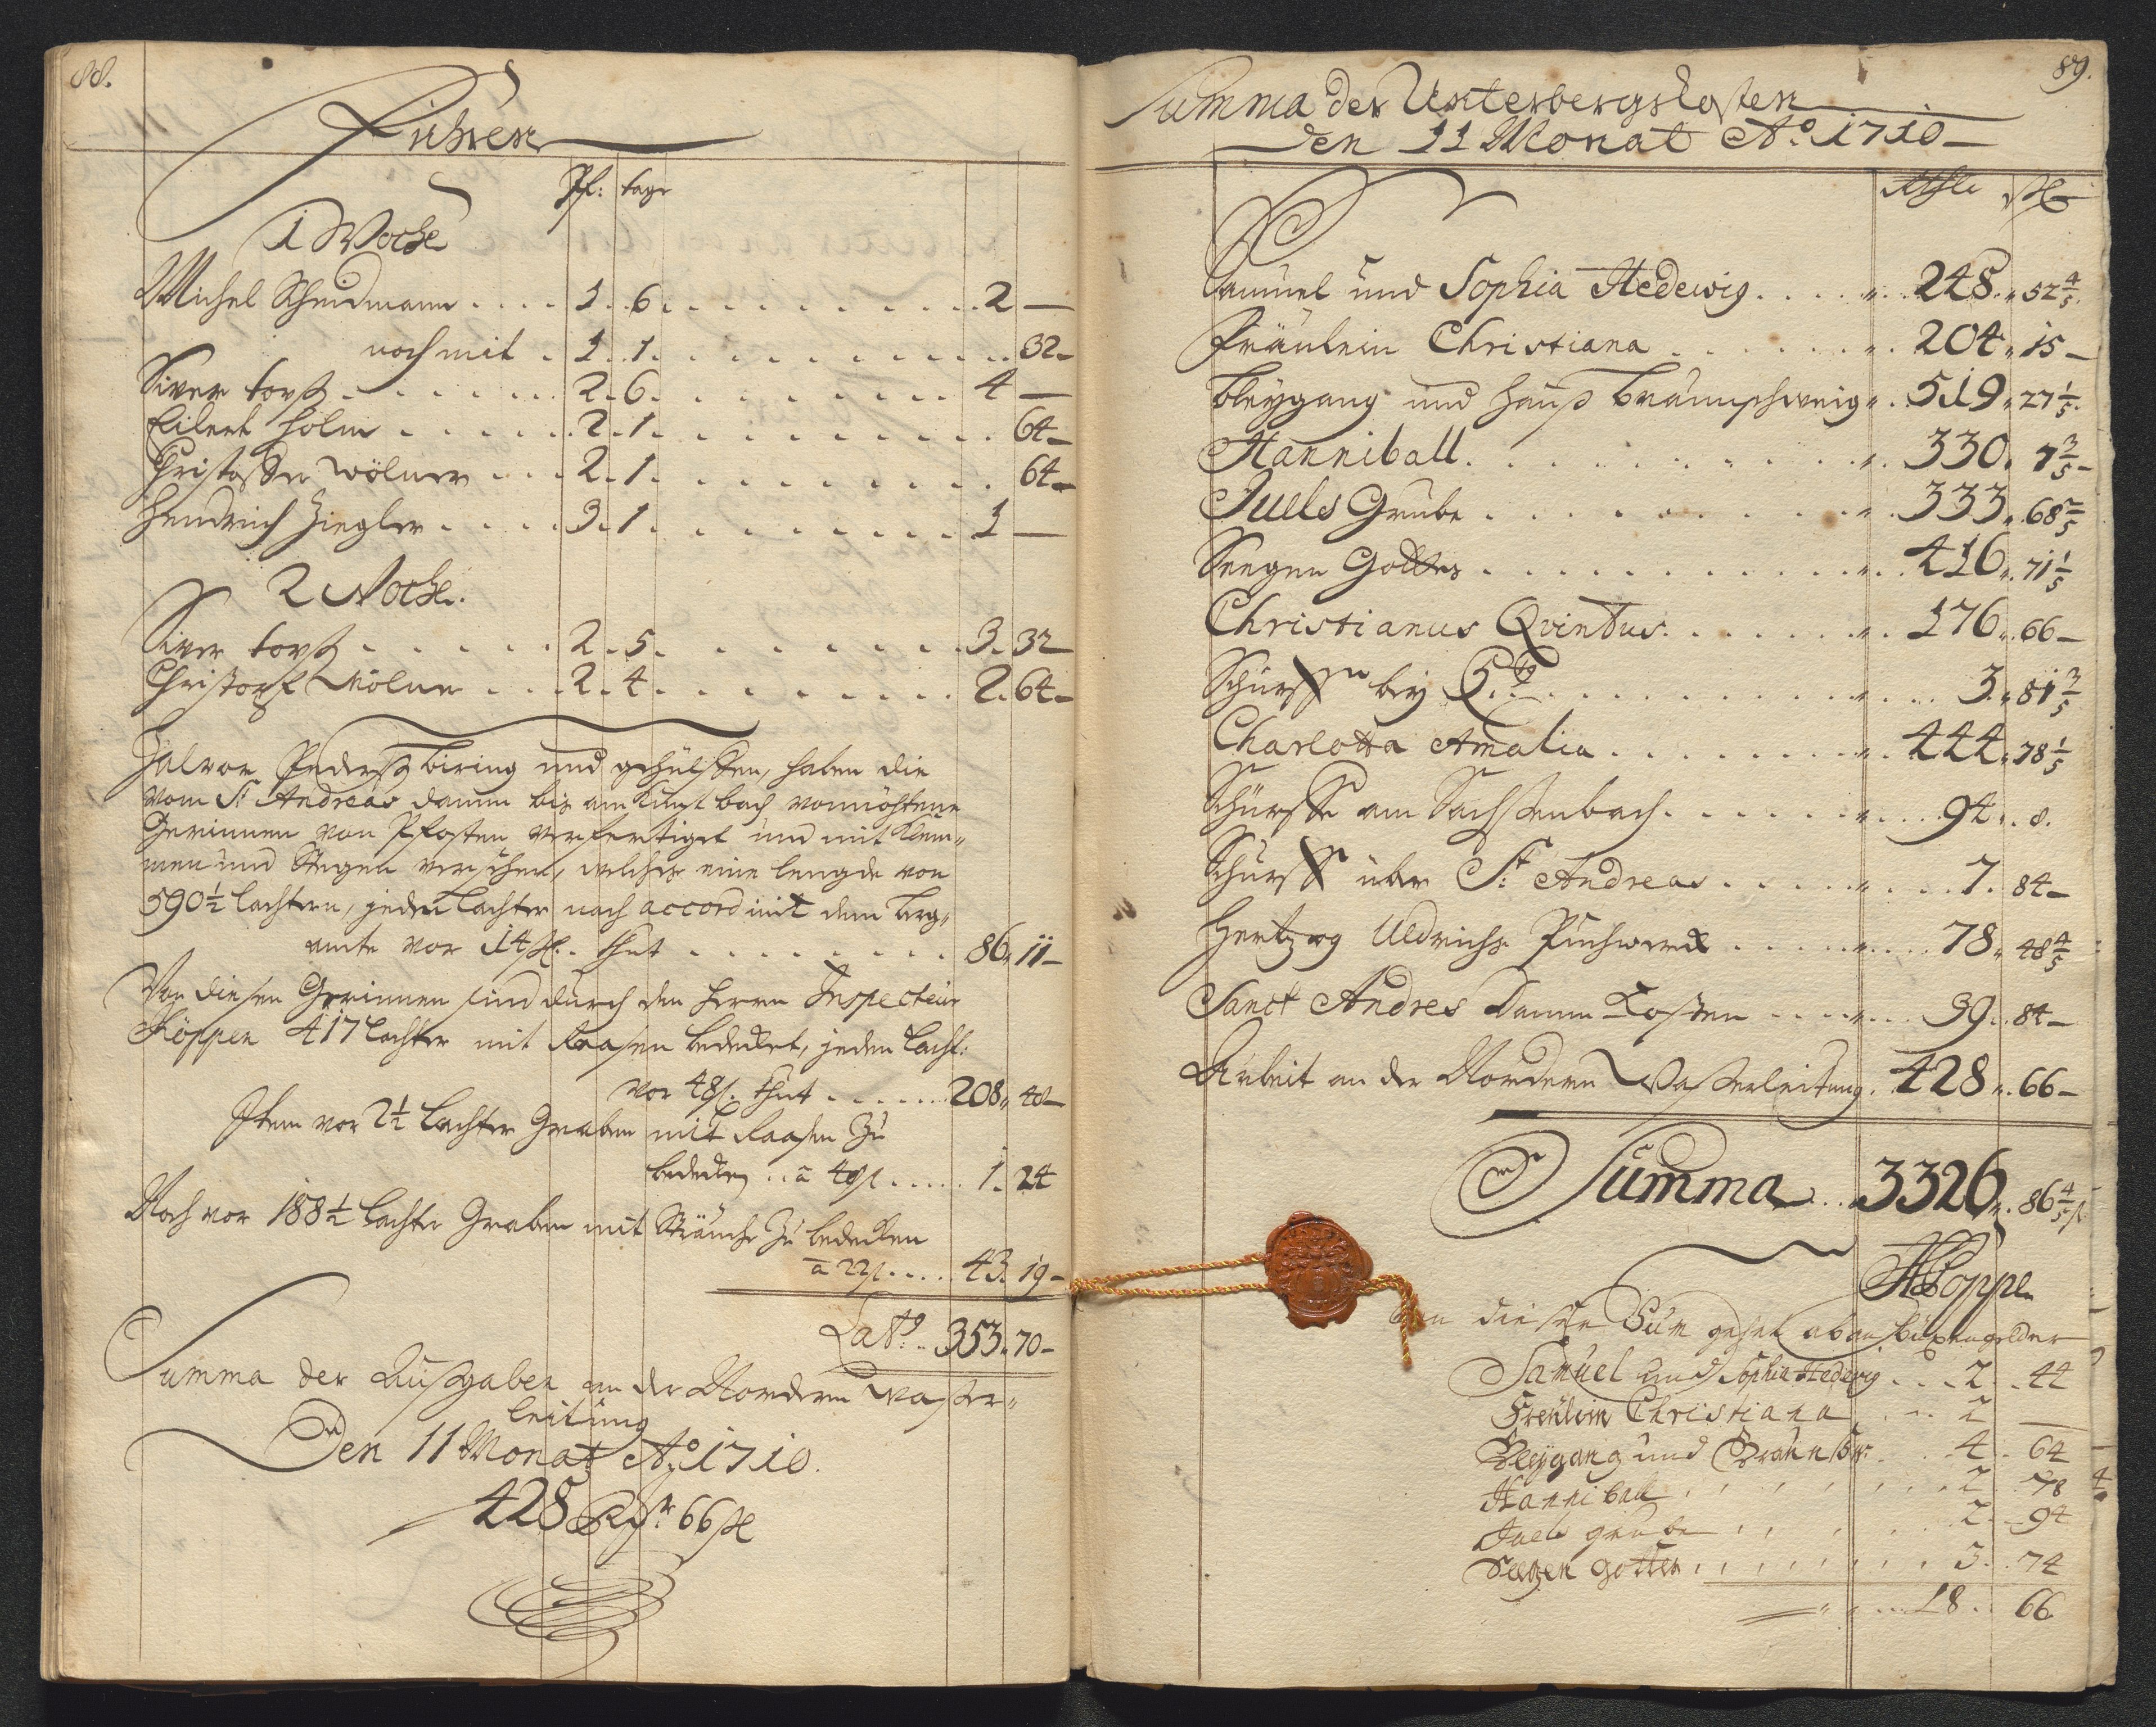 88.
Fuhren
Pf: tage
1 Woche
Michel Scheidmann .... 1. 6. ......... 2 —
noch mit . 1. 1. ......... 32 —
Siver torß ...... 2. 6. ......... 4 —
Eilert Holm ..... 2. 1. ......... 64 —
Christoffer Wölner ... 2. 1. ......... 64 —
Hendrich Ziegler .... 3. 1. ......... 1 —
2 Woche.
Siver torß ..... 2. 5. ......... 3. 32
Christopf Wölner ... 2. 4. ......... 2. 64 —
Halvor Pederß biring und gehülffen, haben die
vom St Andreas Damm bis am Kunst bach
Gerinnen von Pfosten verfertiget und mit Klam„
men und Stegen versehen, welches eine lengde von
590½ lachtern, jeden Lachter nach accord mit dem berg„
amte vor 14 ß. thut ......... 86. 11 —
Von diesen Gerinnen sind durch den Herrn Inspecteur
Köppen 417 Lachter mit Raasen bedecket, jeden Lacht:
vor 48 ß. thut ...... 208. 48 —
Item vor 2½ Lachter Graben mit Raasen zu
bedecken .. a 48 ß ..... 1. 24
Noch vor 188½ Lachter Graben mit Sträuche zu bedecken
a 22 ß .... 43. 19 —
Lat9 .. 353. 70 —
Summa der Ausgaben an der Nordern Wasser„
leitung
Den 11 Monat Ao. 1710.
428 Rthr 66 ß
89.
Summa der Unterbergskosten
Den 11 Monat Ao. 1710 —
Rthlr ß
Samuel und Sophia Hedewig ..... 248. 52 4/5.
Fräulein Christiana ...... 204. 15 —
Bleygang und Hauß braunschweig . 519. 27 1/5.
Hanniball ......... 330. 7 3/5 —
Juels Grube ......... 333. 68 2/5
Seegen Gottes ......... 416. 71 1/5
Christianus Qvintus ....... 176. 66 —
Schürff bey C. 5ts ......... 3. 81 3/5
Charlotta Amalia ......... 444. 78 1/5
Schürffe am Sachssenbach ....... 94. 8.
Schurff über St. Andreas ...... 7. 84 —
Hertzog Uldrichs Puchwerck ...... 78. 48 4/5
Sanct Andres Damm Kosten ..... 39. 84 —
Arbeit an der Nordern Wasserleitung . 428. 66 —
Summa ... 3326. 86 4/5 ß
Koppe
Von dieser Sum gehet ab an büxengelder
Samuel und Sophia Hedewig ... 2. 44
Freulein Christiana .... 2 —
Bleygang und Braunsw: . 4. 64
Hanniball ....... 2. 78
Juels grube ....... 2. 94
Seegen Gottes ....... 3. 74
... 18. 66